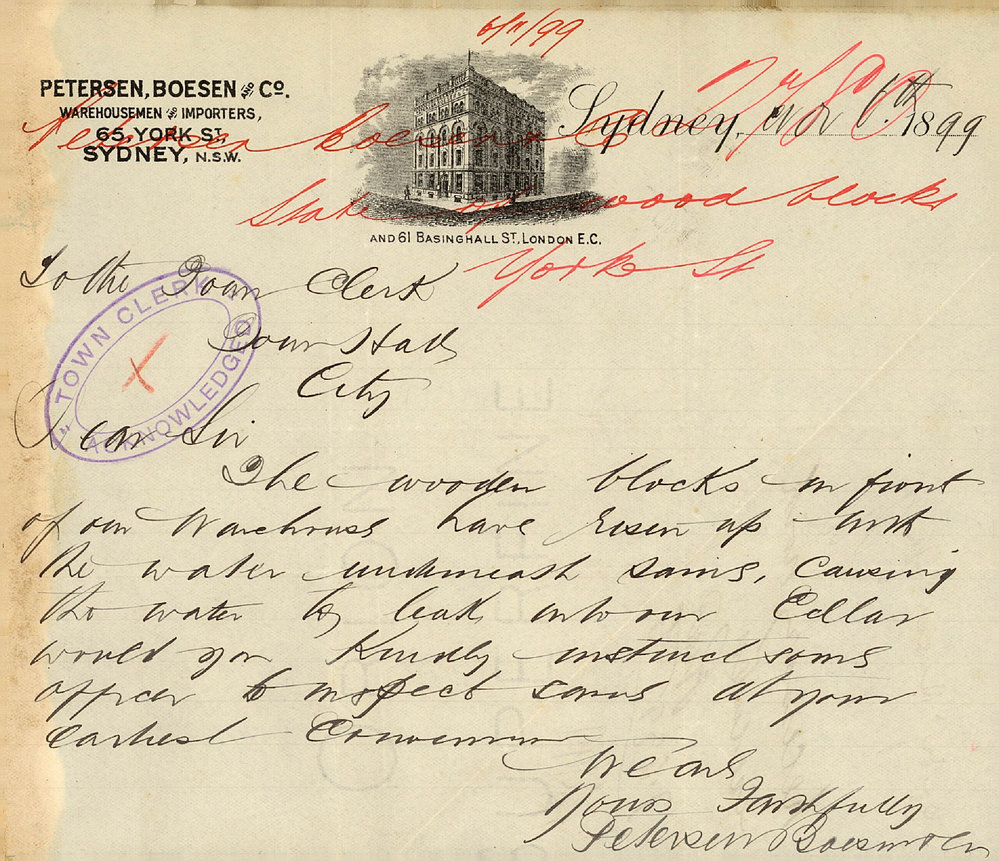 6/11/99
PETERSEN, BOESEN AND Co.
WAREHOUSEMEN AND IMPORTERS,
65, YORK ST.
SYDNEY, N.S.W.
Sydney, Nov 6th 1899
Petersen Boesen & Co
State of wood blocks
York St
AND 61 BASINGHALL ST, LONDON E.C.
To the Town Clerk
Town Hall
City
TOWN CLERK
ACKNOWLEDGED
X
Dear Sir
The wooden blocks in front
of our Warehouse have risen up with
the water underneath same, causing
the water to leak into our Cellar
would you Kindly instruct some
officer to inspect same at your
Earliest Convenience
We are
Yours Faithfully
Petersen Boesen & Co